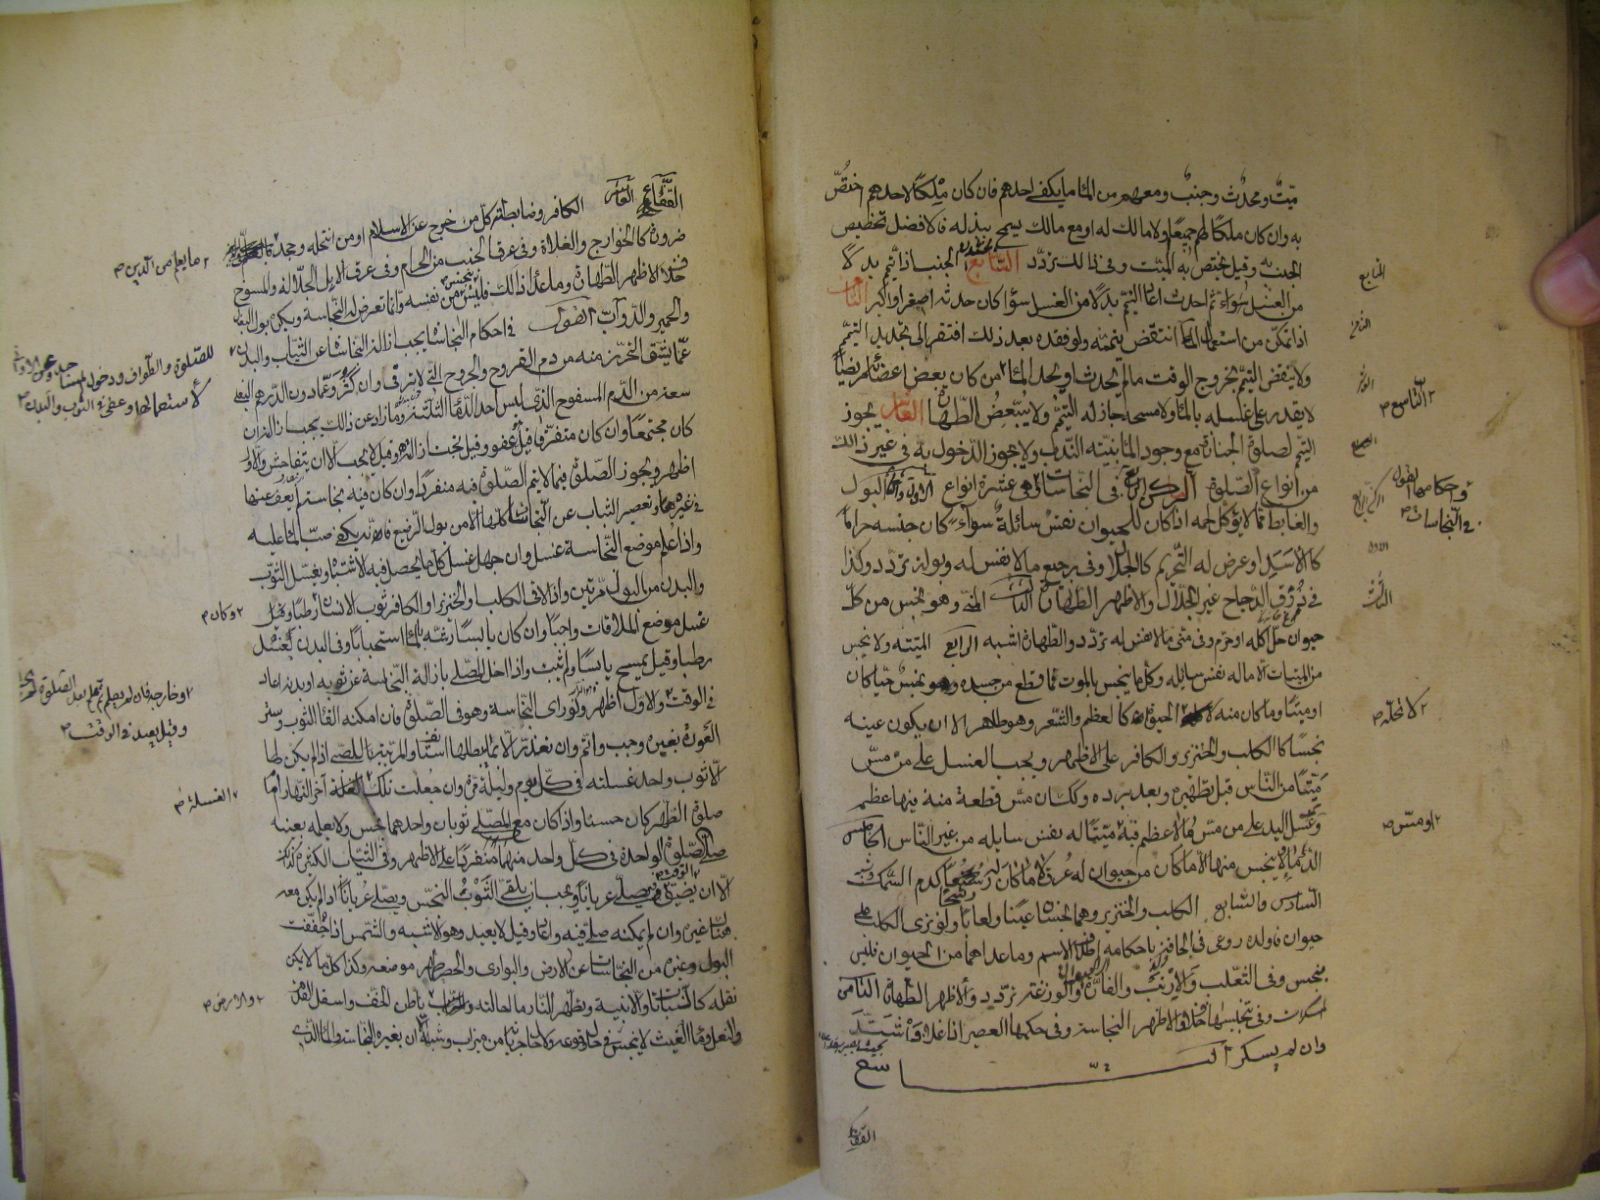 ميت ومحدث وجنب ومعهم من الماء ما يكفي احدهم فان كان ملكا لاحدهم اختص
به وان كان ملكا لهم جميعا او لا مالك له او مع مالك يسمح ببذله فالافضل تخصيص
الجنب به وقيل يختص به الميت وفي ذلك تردد السابع الجنب اذا تيمم بدلا
من الغسل ثم احدث اعاد التيمم بدلا من الغسل سواء كان حدثه اصغر او اكبر الثامن
اذا تمكن من استعمال الماء انتقض تيممه ولو فقده بعد ذلك افتقر الى تجديد التيمم
ولا ينقض التيمم بخروج الوقت ما لم يحدث او يجد الماء من كان بعض اعضائه مريضا
لا يقدر على غسله بالماء ولا مسحه جاز له التيمم ولا يتبعض الطهارة العاشر يجوز
التيمم لصلوة الجنازة مع وجود الماء بنيته الندب ولا يجوز الدخول به في غير ذلك
من انواع الصلوة الركن الرابع في النجاسات وهي عشرة انواع الاول والثاني البول
والغايط مما لا يوكل لحمه اذا كان للحيوان نفس سائلة سواء كان جنسه حراما
كالاسد او عرض له التحريم كالجلال وفي رجيع ما لا نفس له وبوله تردد وكذا
في ذرق الدجاج غير الجلال والاظهر الطهارة الثالث المني وهو نجس من كل
حيوان حل اكله او حرم وفي مني ما لا نفس له تردد والطهارة اشبه الرابع الميتة ولا ينجس
من الميتات الا ماله نفس سايله وكل ما ينجس بالموت فما قطع من جسده فهو نجس حيا كان
او ميتا وما كان منه لا الحيوة كالعظم والشعر وهو طاهر الا ان يكون عينه
نجسا كالكلب والخنزير والكافر على الاظهر ويجب الغسل على من مس
ميتا من الناس قبل تطهيره وبعد برده وكذا ان مس قطعة منه فيها عظم
وغسل اليد على من مس ما لا عظم فيه ميتا له نفس سايله من غير الناس الخامس
الدماء لا ينجس منها الا ما كان من حيوان له عرق لا ما كان له رشحا كدم السمك وشبهه
السادس والسابع الكلب والخنزير وهما نجسان عينا ولعابا ولو نزى الكلب على
حيوان فاولده روعي في الحاقه باحكامه اطلاق الاسم وما عداهما من الحيوان فليس
بنجس وفي الثعلب والارنب والفارة والوزغة تردد والاظهر الطهارة الثامن
المسكرات وفي تنجيسها خلاف والاظهر النجاسة وفي حكمها العصير اذا غلا واشتد
وان لم يسكر التاسع
الفقاع
التاسع
واحكامها القول
في النجاسات
الثالث
كالمحلة
او مس
الفقاع العاشر الكافر وضابطه كل من خرج عن الاسلام او من انتحله وجحد
ضرورة كالخوارج والغلاة وفي عرق الجنب من الحرام وفي عرق الابل الجلالة والمسوخ
خلاف الاظهر الطهارة وما عدا ذلك فليس بنجس من نفسه وانما تعرض له النجاسة ويكره بول البغال
والحمير والدواب القول في احكام النجاسات يجب ازالة النجاسات عن الثياب والبدن
عما يشق التحرز منه من دم القروح والجروح التي لا ترقى وان كثر وعما دون الدرهم البغلي
سعة من الدم المسفوح الذي ليس احد الدماء الثلثة وما زاد عن ذلك يجب ازالته ان
كان مجتمعا وان كان متفرقا قيل عفو وقيل تجب ازالته وقيل لا يجب الا ان يتفاحش والاول
اظهر ويجوز الصلوة فيما لا يتم الصلوة فيه منفردا وان كان فيه نجاسة لم يعف عنها
في غيره وتعصر الثياب عن النجاسات كلها الا من بول الرضيع فانه يكفي صب الماء عليه
واذا علم موضع النجاسة غسل وان جهل غسل كل ما يحصل فيه الاشتباه ويغسل الثوب
والبدن من البول مرتين واذا لاقى الكلب او الخنزير او الكافر ثوب الانسان رطبا
غسل موضع الملاقات واجبا وان كان يابسا رشه بالماء استحبابا وفي البدن يغسل
رطبا وقيل يمسح يابسا ولم يثبت واذا اخل المصلي بازالة النجاسة عن ثوبه او بدنه اعاد
في الوقت والاول اظهر ولو راى النجاسة وهو في الصلوة فان امكنه القاء الثوب وستر
العورة بغيره وجب واتم وان تعذر الا بما يبطلها استانف والمربية للصبي اذا لم يكن لها
الا ثوب واحد غسلته في كل يوم وليلة مرة وان جعلت تلك آخر النهار امام
صلوة الظهر كان حسنا واذا كان مع المصلي ثوبان واحدهما نجس ولا يعلم بعينه
صلى الصلوة الواحدة في كل واحد منهما منفردا على الاظهر وفي الثياب الكثيرة كذلك
الا ان يضيق الوقت فيصلي عريانا ويجب ان يلقي الثوب النجس ويصلي عريانا اذا لم يكن معه
هناك غيره وان لم يمكنه صلى فيه واعاد وقيل لا يعيد وهو الاشبه والشمس اذا جففت
البول وغيره من النجاسات عن الارض والبواري والحصر طهر موضعه وكذا كل ما لا يمكن
نقله كالنباتات والابنية وتطهر النار ما احالته والتراب باطن الخف واسفل القدم
والنعل وماء الغيث لا ينجس في حال وقوعه ولا حال جريانه من ميزاب وشبهه الا ان يغيره النجاسة والماء الذي
ما يعلم من الدين
للصلوة والطواف ودخول المساجد وعن الاواني
لاستعمالها وعفي في الثوب والبدن
وكان
او خارجه فان لم يعلم ثم علم بعد الصلوة
وقيل يعيد في الوقت
الغسلة
والارض